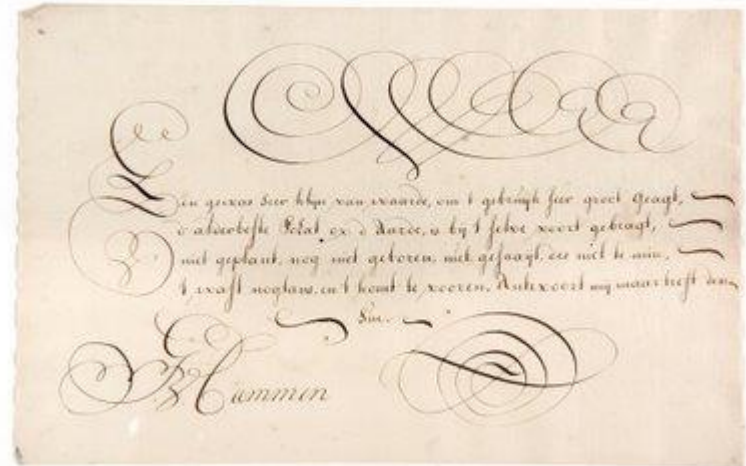 Een gewas seer klijn van waarde, om t gebruijk seer groot Geagt,
d alderbeste op d Aarde, is bij t selve voort gebragt,
niet geplant, nog niet geboren, niet gesaayt, niet te min,
t wast nogtans, en t komt te vooren, Antwoort mij maar treft den
Sin.
Hammen